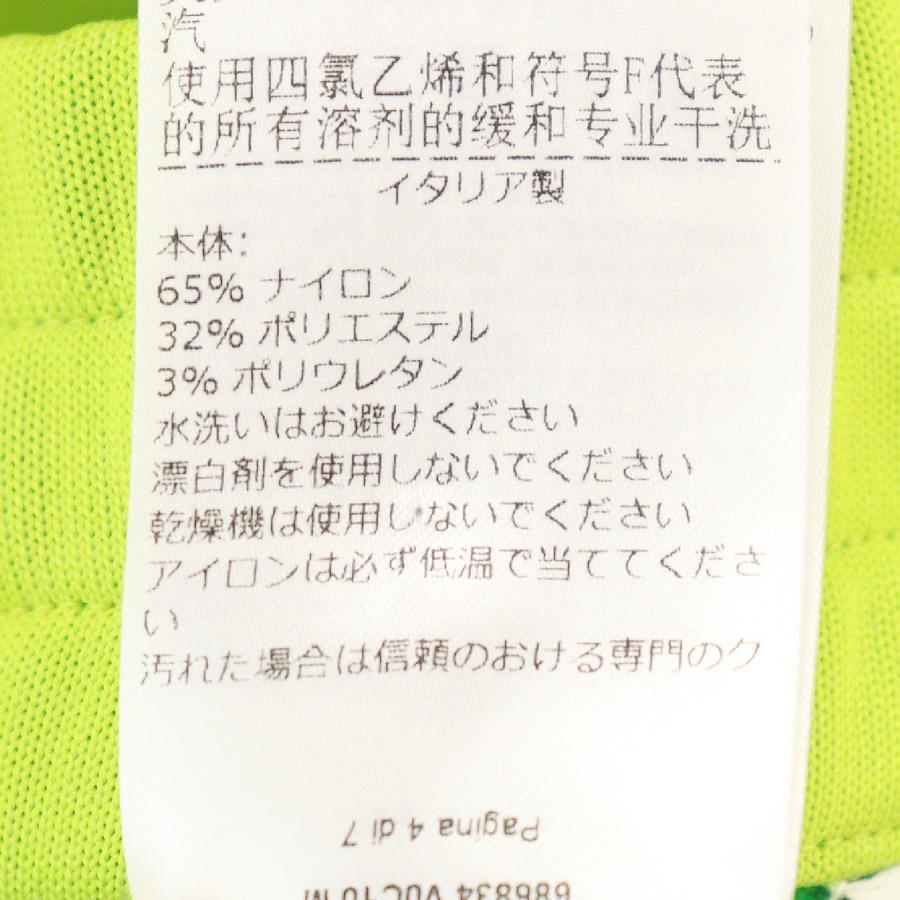 汽
使用四氯乙烯和符号F代表
的所有溶剂的缓和专业干洗
イタリア製
本体:
65% ナイロン
32% ポリエステル
3% ポリウレタン
水洗いはお避けください
漂白剤を使用しないでください
乾燥機は使用しないでください
アイロンは必ず低温で当ててくださ
い
汚れた場合は信頼のおける専門のク
Pagina 4 di 7
686834 V0C10 M